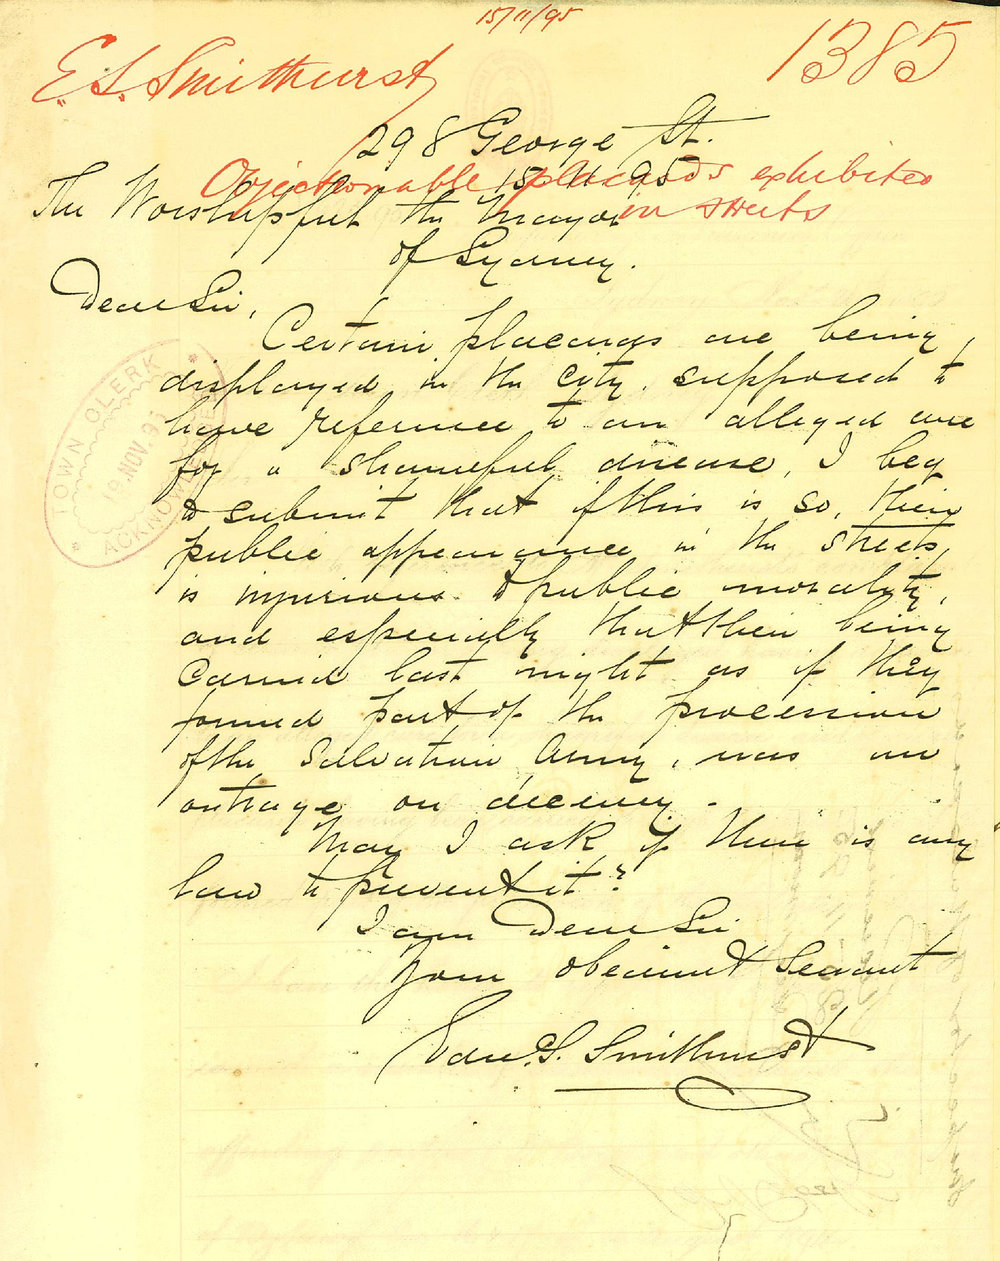 15/11/95
E. S. Smithurst
1385
298 George St.
15 11 95
Objectionable placards exhibited
in streets
The Worshipful the Mayor
of Sydney.
Dear Sir,
Certain placards are being
displayed in the city, supposed to
have reference to an alleged cure
for a shameful disease, I beg
to submit that if this is so, their
public appearance in the streets,
is injurious to public morality,
and especially that their being
carried last night as if they
formed part of the procession
of the Salvation Army, was an
outrage on decency.
May I ask if there is any
law to prevent it?
I am Dear Sir
Your obedient Servant
Edw. S. Smithurst
TOWN CLERK
19 NOV. 95
ACKNOWLEDGED